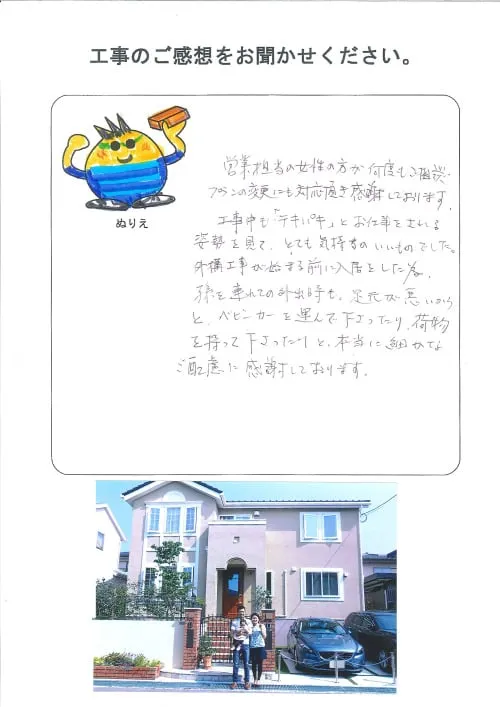 工事のご感想をお聞かせください。
ぬりえ
営業担当の女性の方が何度もご相談・
プランの変更にも対応頂き感謝しております。
工事中も「テキパキ」とお仕事をされる
姿勢を見て、とても気持ちのいいものでした。
外構工事が始まる前に入居をした為、
孫を連れての外出時も、足元が悪いから
と、ベビーカーを運んで下さったり、荷物
を持って下さったりと、本当に細かな
ご配慮に感謝しております。